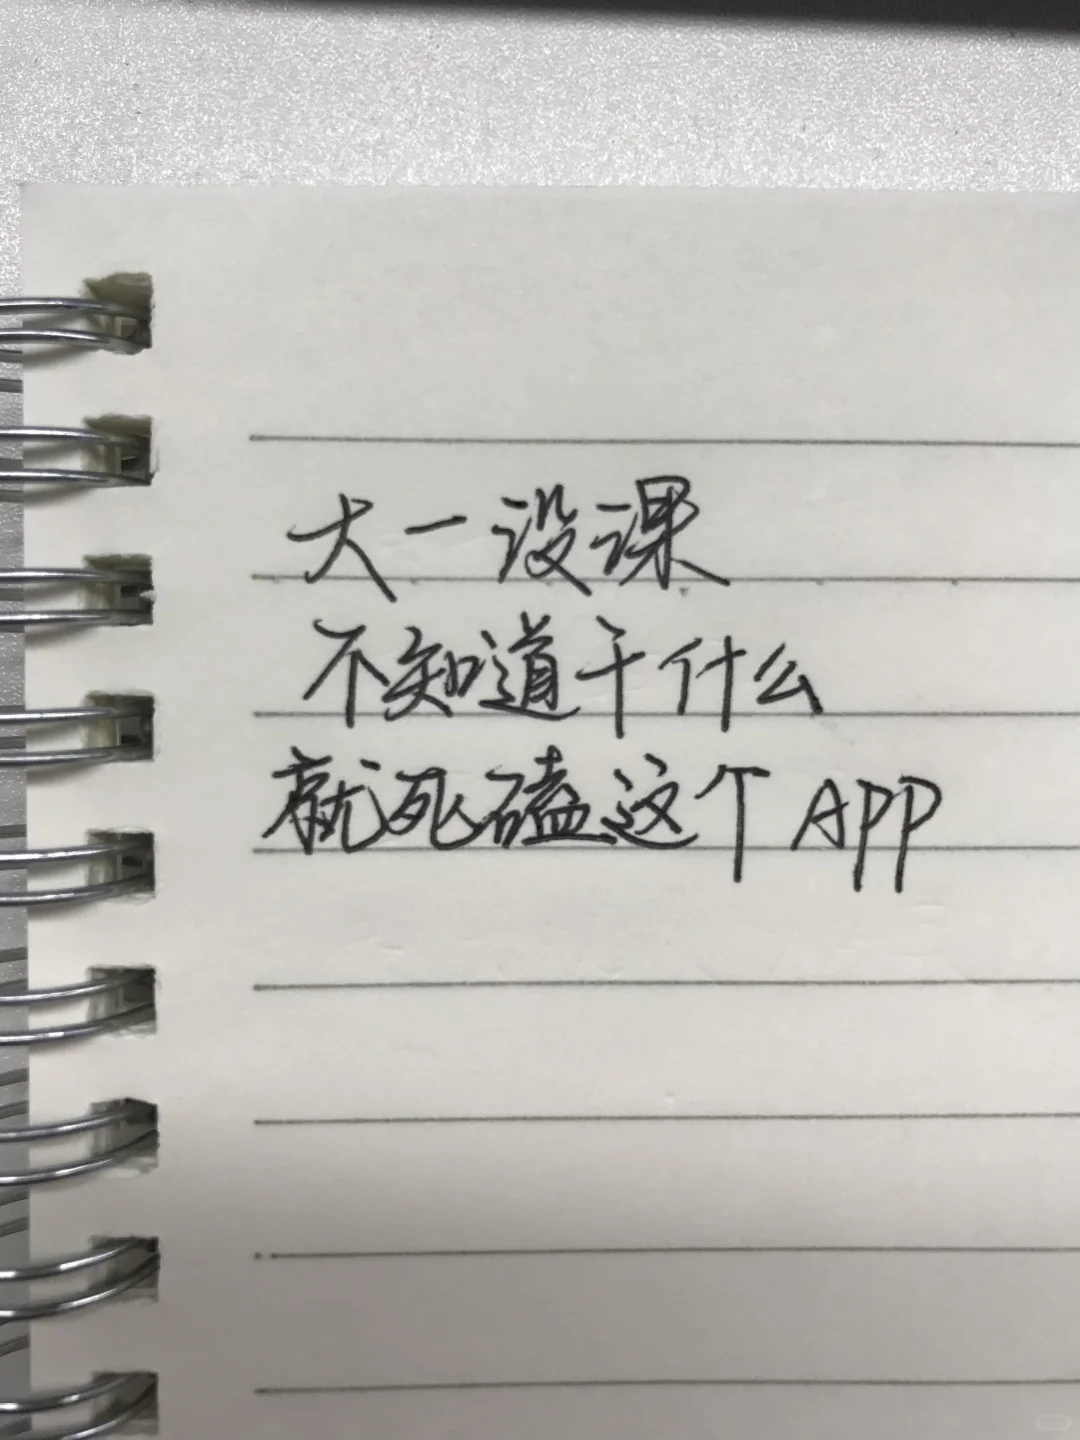 大一没课
不知道干什么
就死磕这个APP